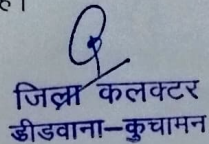 है।
जिला कलक्टर
डीडवाना–कुचामन